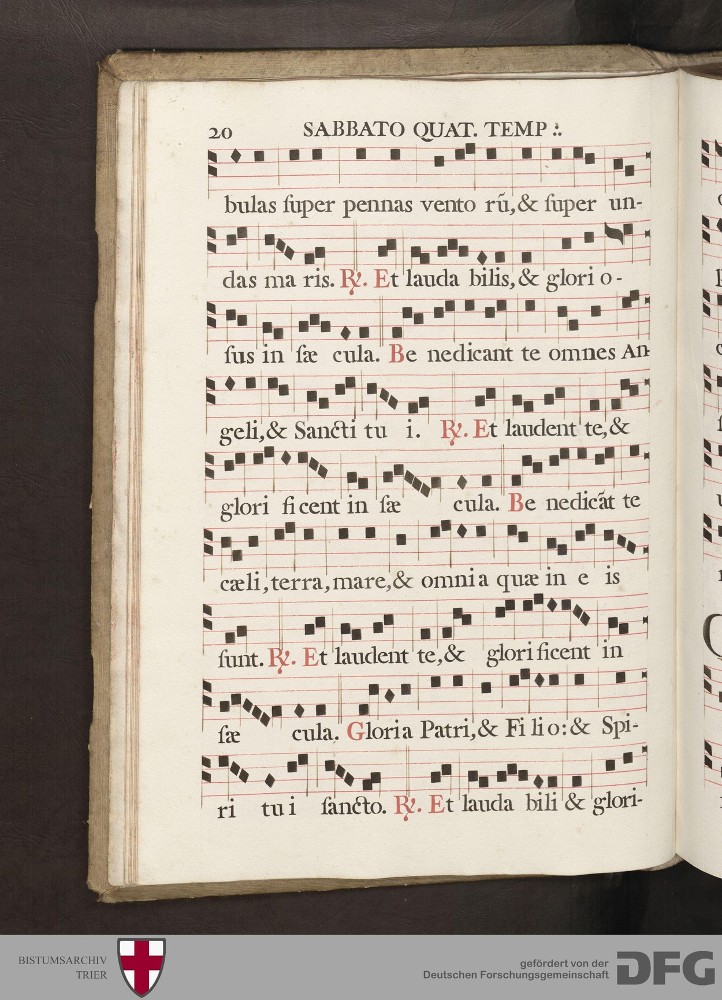 20 SABBATO QUAT. TEMP.
bulas ſuper pennas vento rũ, & ſuper un-
das ma ris. ℟. Et lauda bilis, & glori o-
ſus in ſæ cula. Be nedicant te omnes An-
geli, & Sancti tu i. ℟. Et laudent te, &
glori ficent in ſæ cula. Be nedicãt te
cæli, terra, mare, & omnia quæ in e is
ſunt. ℟. Et laudent te, & glorificent in
ſæ cula. Gloria Patri, & Filio: & Spi-
ri tui ſancto. ℟. Et lauda bili & glori-
BISTUMSARCHIV
TRIER
gefördert von der
Deutschen Forschungsgemeinschaft
DFG